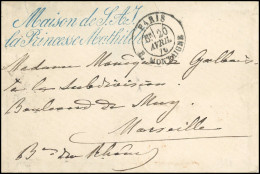 Maison de S.A.I.
la Princesse Mathilde
PARIS
20
AVRIL
MONTAIGNE
Madame
à la Subdivision
Boulevard de Muy
Marseille
B^es du Rhône